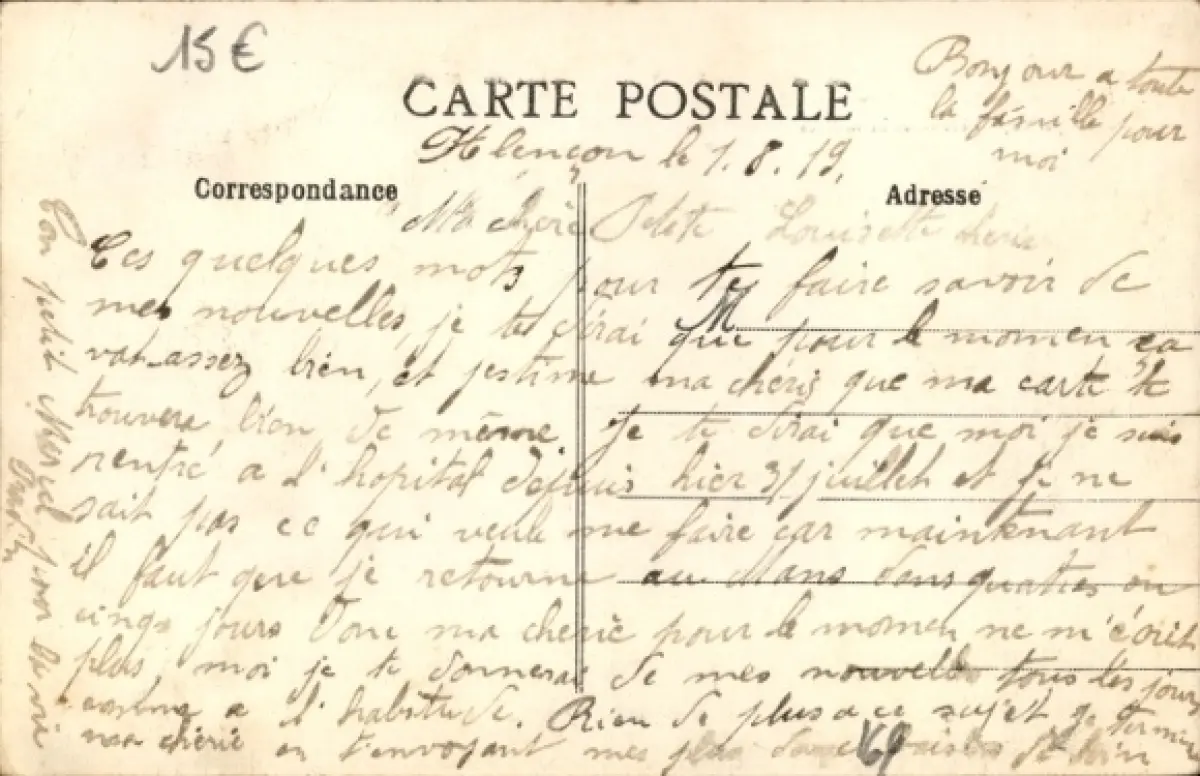 15€
Bonjour a toute
la famille pour
moi
CARTE POSTALE
Alençon le 1.8.19.
Correspondance
Adresse
Ma chère Petite Louisette cherie
Ces quelques mots pour te faire savoir de
mes nouvelles, je te dirai que pour le momen ca
va assez bien, et jestime ma cherie que ma carte te
trouvera bien de même. Je te dirai que moi je suis
rentré a l'hopital depuis hier 31 juillet et je ne
sait pas ce qui veule me faire car maintenant
il faut que je retourne au Mans dans quatres ou
cinqs jours Donc ma cherie pour le momen ne m'écrit
plus, moi je te donnerai de mes nouvelles tous les jours
comme a l'habitude. Rien de plus a ce sujet je termine
ma chérie en t'envoyant mes plus doux baisers de loin
M
69
Ton petit Marcel pour la vie